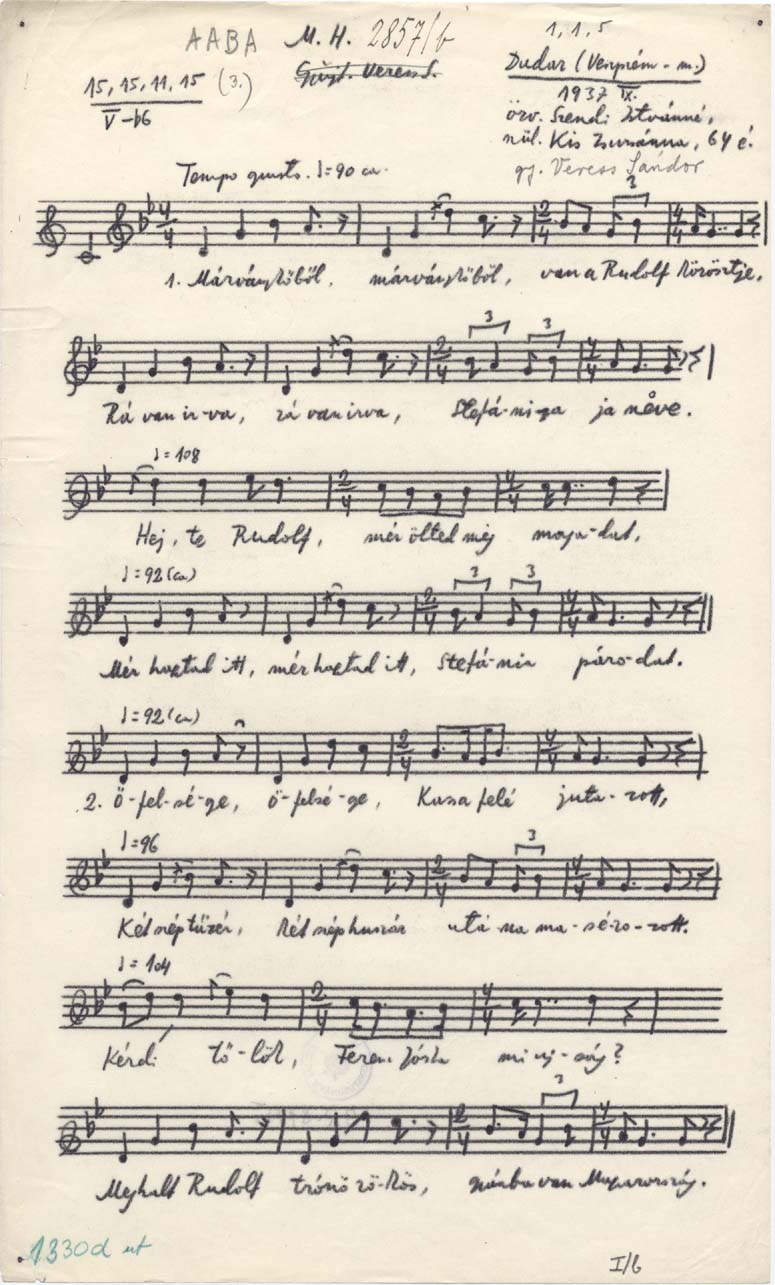 AABA M. H. 2857/b 1, 1, 5
15, 15, 11, 15 (3.) Gyűjt. Veress S. Dudar (Veszprém-m.)
V-b6 1937 IX.
özv. Szendi Istvánné,
szül. Kis Zsuzsánna, 64 é.
gy. Veress Sándor
Tempo giusto. ♩=90 ca.
3
4/4 2/4 4/4
1. Márványkőből, márványkőből, van a Rudolf körösztje,
3 3
2/4 4/4
Rá van ir-va, rá van irva, Stefá-ni-ga ja neve.
♩=108
2/4 4/4
Hej, te Rudolf, mér ölted még magadat,
♩=92(ca)
3 3
2/4 4/4
Mér hattad itt, mér hattad itt, Stefá-nia páro-dat.
♩=92(ca)
2/4 4/4
2. Ő-fel-sé-ge, ő-felsé-ge, Kassa felé juta-zott,
♩=96
3
2/4 4/4
Két néptüzér, két néphuszár utá-na ma-sé-ro-zott.
♩=104
2/4 4/4
Kérdi tő-lök, Feren Jóska mi uj-ság?
3
2/4 4/4
Meghalt Rudolf trónörö-kös, gyászba van Magyarország.
1330d ut
I/b